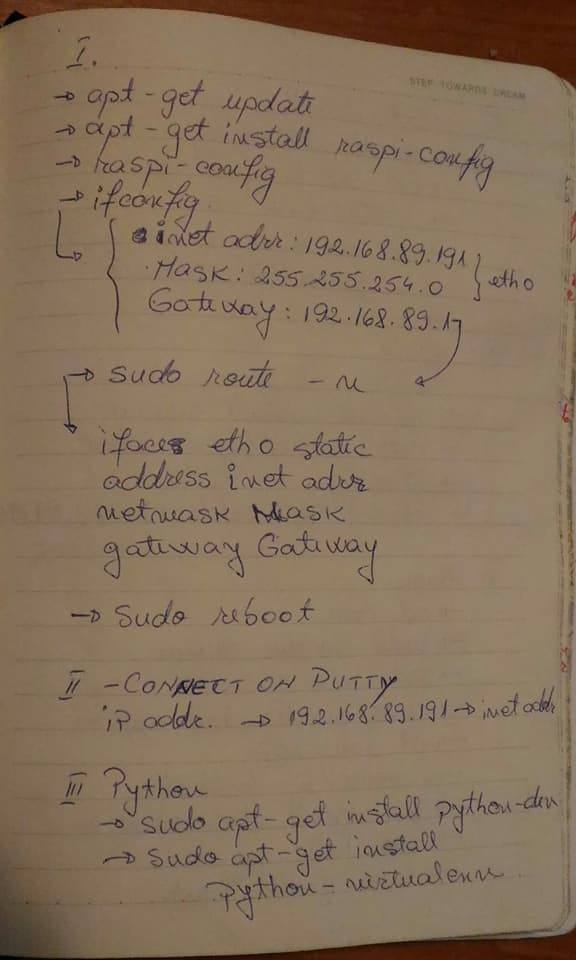 STEP TOWARDS DREAM
I.
→ apt-get update
→ apt-get install raspi-config
→ raspi-config
→ ifconfig
inet adrr: 192.168.89.191
Mask: 255.255.254.0 } eth0
Gateway: 192.168.89.1
→ sudo route -n
ifaces eth0 static
address inet adrr
netmask Mask
gateway Gateway
→ sudo reboot
II - CONNECT ON PUTTY
iP addr. → 192.168.89.191 → inet addr
III Python
→ sudo apt-get install python-dev
→ sudo apt-get install
python-virtualenv